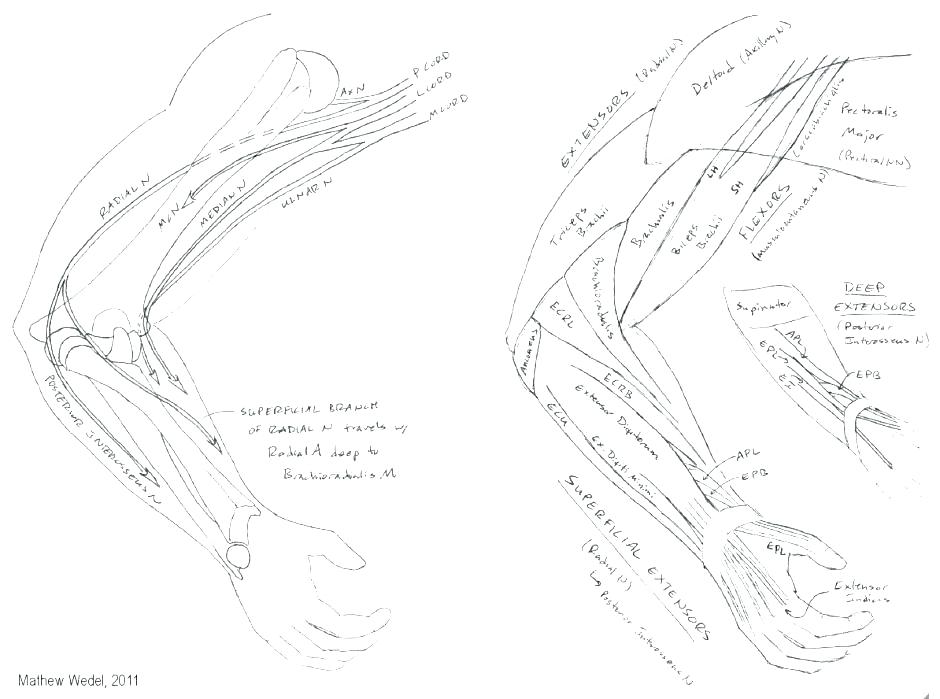 P CORD
L CORD
M CORD
AxN
RADIAL N
McN
MEDIAN N
ULNAR N
POSTERIOR INTEROSSEUS N
SUPERFICIAL BRANCH
OF RADIAL N travels w/
Radial A deep to
Brachioradialis M
Mathew Wedel, 2011
EXTENSORS (Radial N)
Deltoid (Axillary N)
Coracobrachialis
Pectoralis
Major
(Pectoral NN)
LH
SH
Triceps
Brachii
Brachialis
Biceps
Brachii
FLEXORS
(Musculocutaneous N)
Brachioradialis
ECRL
Anconeus
ECRB
Extensor Digitorum
ECU
Ex. Digiti Minimi
APL
EPB
EPL
Extensor
Indicis
SUPERFICIAL EXTENSORS
(Radial N)
↳ Posterior Interosseus N
DEEP
EXTENSORS
(Posterior
Interosseus N)
Supinator
APL
EPL
EI
EPB